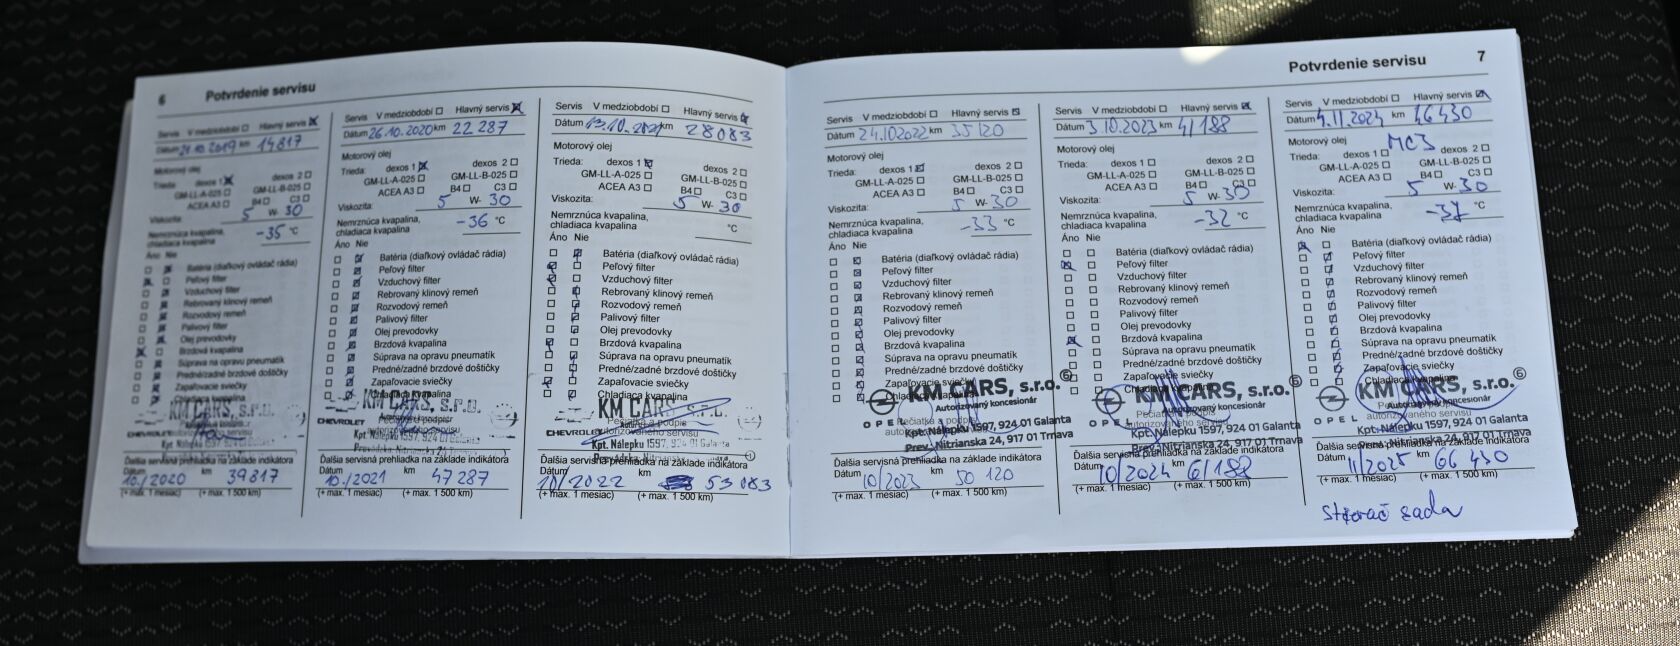 6 Potvrdenie servisu
Servis V medziobdobí Hlavný servis
Dátum 21.10.2019 km 14817
Motorový olej
Trieda: dexos 1 dexos 2
GM-LL-A-025 GM-LL-B-025
ACEA A3 B4 C3
Viskozita: 5 W- 30
Nemrznúca kvapalina,
chladiaca kvapalina -35 °C
Áno Nie
Batéria (diaľkový ovládač rádia)
Peľový filter
Vzduchový filter
Rebrovaný klinový remeň
Rozvodový remeň
Palivový filter
Olej prevodovky
Brzdová kvapalina
Súprava na opravu pneumatík
Predné/zadné brzdové doštičky
Zapaľovacie sviečky
Chladiaca kvapalina
KM CARS, s.r.o.
CHEVROLET
Ďalšia servisná prehliadka na základe indikátora
Dátum km
10./2020 39817
(+ max. 1 mesiac) (+ max. 1 500 km)
Servis V medziobdobí Hlavný servis
Dátum 26.10.2020 km 22 287
Motorový olej
Trieda: dexos 1 dexos 2
GM-LL-A-025 GM-LL-B-025
ACEA A3 B4 C3
Viskozita: 5 W- 30
Nemrznúca kvapalina,
chladiaca kvapalina -36 °C
Áno Nie
Batéria (diaľkový ovládač rádia)
Peľový filter
Vzduchový filter
Rebrovaný klinový remeň
Rozvodový remeň
Palivový filter
Olej prevodovky
Brzdová kvapalina
Súprava na opravu pneumatík
Predné/zadné brzdové doštičky
Zapaľovacie sviečky
Chladiaca kvapalina
KM CARS, s.r.o.
CHEVROLET
Kpt. Nálepku 1597, 924 01 Galanta
Ďalšia servisná prehliadka na základe indikátora
Dátum km
10./2021 47 287
(+ max. 1 mesiac) (+ max. 1 500 km)
Servis V medziobdobí Hlavný servis
Dátum 13.10.2021 km 28083
Motorový olej
Trieda: dexos 1 dexos 2
GM-LL-A-025 GM-LL-B-025
ACEA A3 B4 C3
Viskozita: 5 W- 30
Nemrznúca kvapalina,
chladiaca kvapalina °C
Áno Nie
Batéria (diaľkový ovládač rádia)
Peľový filter
Vzduchový filter
Rebrovaný klinový remeň
Rozvodový remeň
Palivový filter
Olej prevodovky
Brzdová kvapalina
Súprava na opravu pneumatík
Predné/zadné brzdové doštičky
Zapaľovacie sviečky
Chladiaca kvapalina
KM CARS, s.r.o.
CHEVROLET
Kpt. Nálepku 1597, 924 01 Galanta
Ďalšia servisná prehliadka na základe indikátora
Dátum km
10/2022 53 083
(+ max. 1 mesiac) (+ max. 1 500 km)
Potvrdenie servisu 7
Servis V medziobdobí Hlavný servis
Dátum 24.10.2022 km 35120
Motorový olej
Trieda: dexos 1 dexos 2
GM-LL-A-025 GM-LL-B-025
ACEA A3 B4 C3
Viskozita: 5 W- 30
Nemrznúca kvapalina,
chladiaca kvapalina -33 °C
Áno Nie
Batéria (diaľkový ovládač rádia)
Peľový filter
Vzduchový filter
Rebrovaný klinový remeň
Rozvodový remeň
Palivový filter
Olej prevodovky
Brzdová kvapalina
Súprava na opravu pneumatík
Predné/zadné brzdové doštičky
Zapaľovacie sviečky
Chladiaca kvapalina
KM CARS, s.r.o. 6
Autorizovaný koncesionár
OPEL
Kpt. Nálepku 1597, 924 01 Galanta
Prev.: Nitrianska 24, 917 01 Trnava
Ďalšia servisná prehliadka na základe indikátora
Dátum km
10/2023 50 120
(+ max. 1 mesiac) (+ max. 1 500 km)
Servis V medziobdobí Hlavný servis
Dátum 3.10.2023 km 41188
Motorový olej
Trieda: dexos 1 dexos 2
GM-LL-A-025 GM-LL-B-025
ACEA A3 B4 C3
Viskozita: 5 W- 30
Nemrznúca kvapalina,
chladiaca kvapalina -32 °C
Áno Nie
Batéria (diaľkový ovládač rádia)
Peľový filter
Vzduchový filter
Rebrovaný klinový remeň
Rozvodový remeň
Palivový filter
Olej prevodovky
Brzdová kvapalina
Súprava na opravu pneumatík
Predné/zadné brzdové doštičky
Zapaľovacie sviečky
Chladiaca kvapalina
KM CARS, s.r.o. 6
Autorizovaný koncesionár
OPEL
Kpt. Nálepku 1597, 924 01 Galanta
Prev.: Nitrianska 24, 917 01 Trnava
Ďalšia servisná prehliadka na základe indikátora
Dátum km
10/2024 61188
(+ max. 1 mesiac) (+ max. 1 500 km)
Servis V medziobdobí Hlavný servis
Dátum 4.11.2024 km 46430
Motorový olej
Trieda: dexos 1 dexos 2
GM-LL-A-025 GM-LL-B-025
ACEA A3 B4 C3
Viskozita: 5 W- 30
Nemrznúca kvapalina,
chladiaca kvapalina °C
Áno Nie
Batéria (diaľkový ovládač rádia)
Peľový filter
Vzduchový filter
Rebrovaný klinový remeň
Rozvodový remeň
Palivový filter
Olej prevodovky
Brzdová kvapalina
Súprava na opravu pneumatík
Predné/zadné brzdové doštičky
Zapaľovacie sviečky
Chladiaca kvapalina
KM CARS, s.r.o. 6
Autorizovaný koncesionár
OPEL
Kpt. Nálepku 1597, 924 01 Galanta
Prev.: Nitrianska 24, 917 01 Trnava
Ďalšia servisná prehliadka na základe indikátora
Dátum km
11/2025 66 430
(+ max. 1 mesiac) (+ max. 1 500 km)
sada